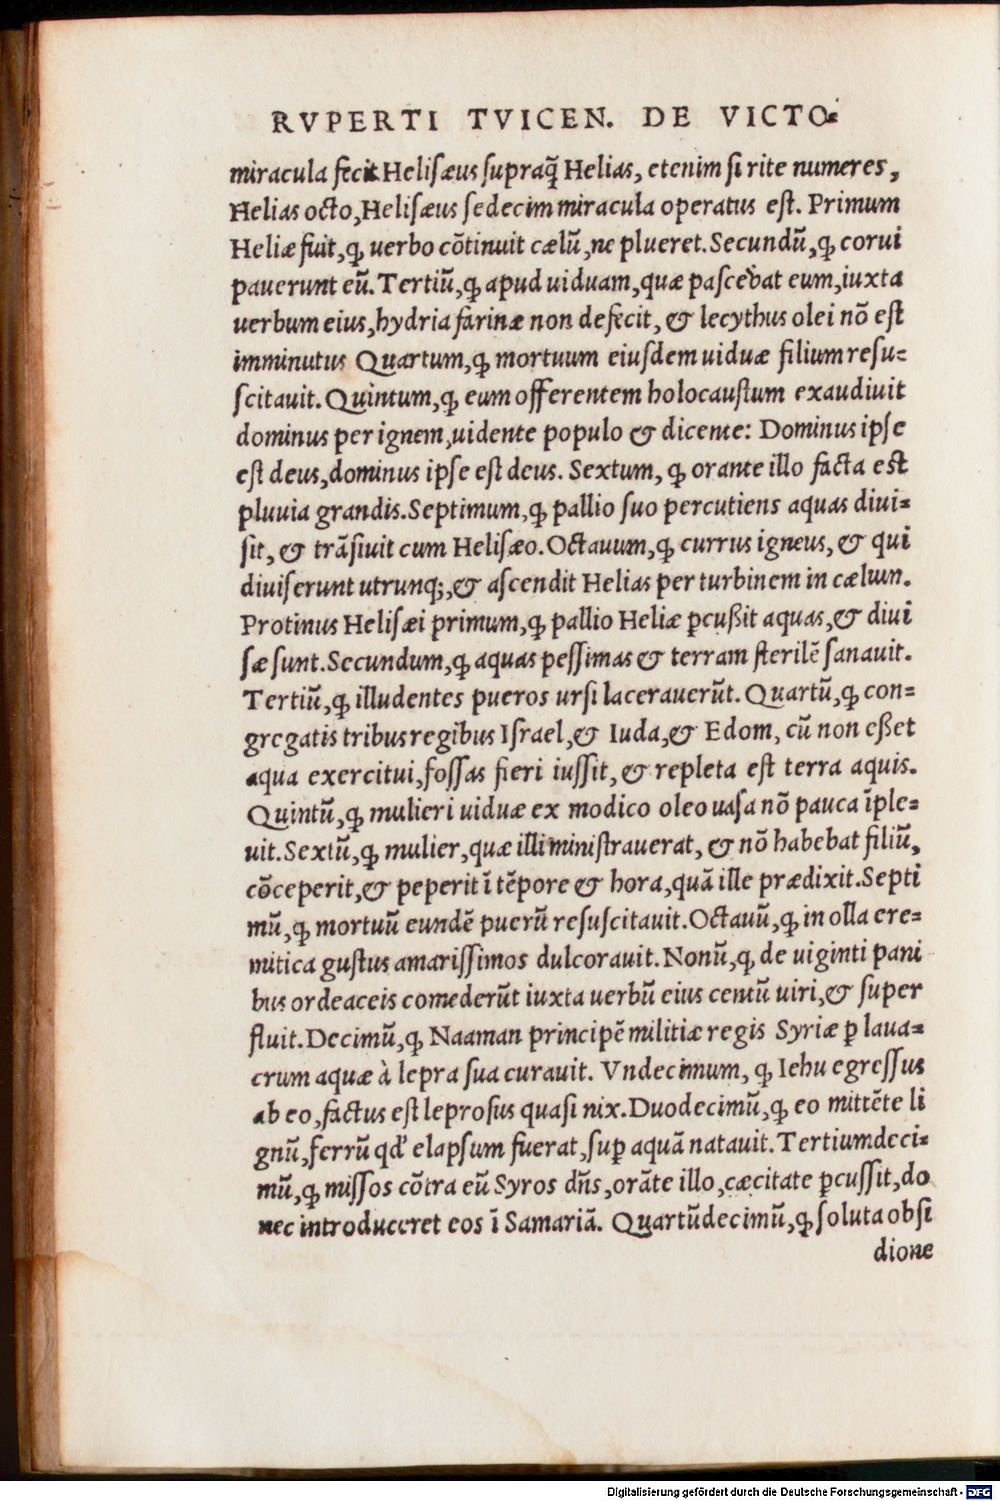 RVPERTI TVICEN. DE VICTO⸗
miracula fecit Heliſæus ſupraq̃ Helias, etenim ſi rite numeres,
Helias octo, Heliſæus ſedecim miracula operatus eſt. Primum
Heliæ fuit, ꝙ uerbo cōtinuit cælū, ne plueret. Secundū, ꝙ corui
pauerunt eū. Tertiū, ꝙ apud uiduam, quæ paſcebat eum, iuxta
uerbum eius, hydria farinæ non defecit, & lecythus olei nō eſt
imminutus Quartum, ꝙ mortuum eiuſdem uiduæ filium reſu⸗
ſcitauit. Quintum, ꝙ eum offerentem holocauſtum exaudiuit
dominus per ignem, uidente populo & dicente: Dominus ipſe
eſt deus, dominus ipſe eſt deus. Sextum, ꝙ orante illo facta eſt
pluuia grandis. Septimum, ꝙ pallio ſuo percutiens aquas diui⸗
ſit, & trāſiuit cum Heliſæo. Octauum, ꝙ currus igneus, & qui
diuiſerunt utrunq;, & aſcendit Helias per turbinem in cælum.
Protinus Heliſæi primum, ꝙ pallio Heliæ ꝑcußit aquas, & diui
ſæ ſunt. Secundum, ꝙ aquas peſſimas & terram ſterilē ſanauit.
Tertiū, ꝙ illudentes pueros urſi lacerauerūt. Quartū, ꝙ con⸗
gregatis tribus regibus Iſrael, & Iuda, & Edom, cū non eßet
aqua exercitui, foſſas fieri iuſſit, & repleta eſt terra aquis.
Quintū, ꝙ mulieri uiduæ ex modico oleo uaſa nō pauca īple⸗
uit. Sextū, ꝙ mulier, quæ illi miniſtrauerat, & nō habebat filiū,
cōceperit, & peperit ī tēpore & hora, quā ille prædixit. Septi
mū, ꝙ mortuū eundē puerū reſuſcitauit. Octauū, ꝙ in olla ere⸗
mitica guſtus amariſſimos dulcorauit. Nonū, ꝙ de uiginti pani
bus ordeaceis comederūt iuxta uerbū eius centū uiri, & ſuper
fluit. Decimū, ꝙ Naaman principē militiæ regis Syriæ ꝑ laua⸗
crum aquæ à lepra ſua curauit. Vndecimum, ꝙ Iehu egreſſus
ab eo, factus eſt leproſus quaſi nix. Duodecimū, ꝙ eo mittēte li
gnū, ferrū qđ elapſum fuerat, ſuꝑ aquā natauit. Tertiumdeci⸗
mū, ꝙ miſſos cōtra eū Syros dn̄s, orāte illo, cæcitate ꝑcuſſit, do
nec introduceret eos ī Samariā. Quartūdecimū, ꝙ ſoluta obſi
dione
Digitalisierung gefördert durch die Deutsche Forschungsgemeinschaft - DFG